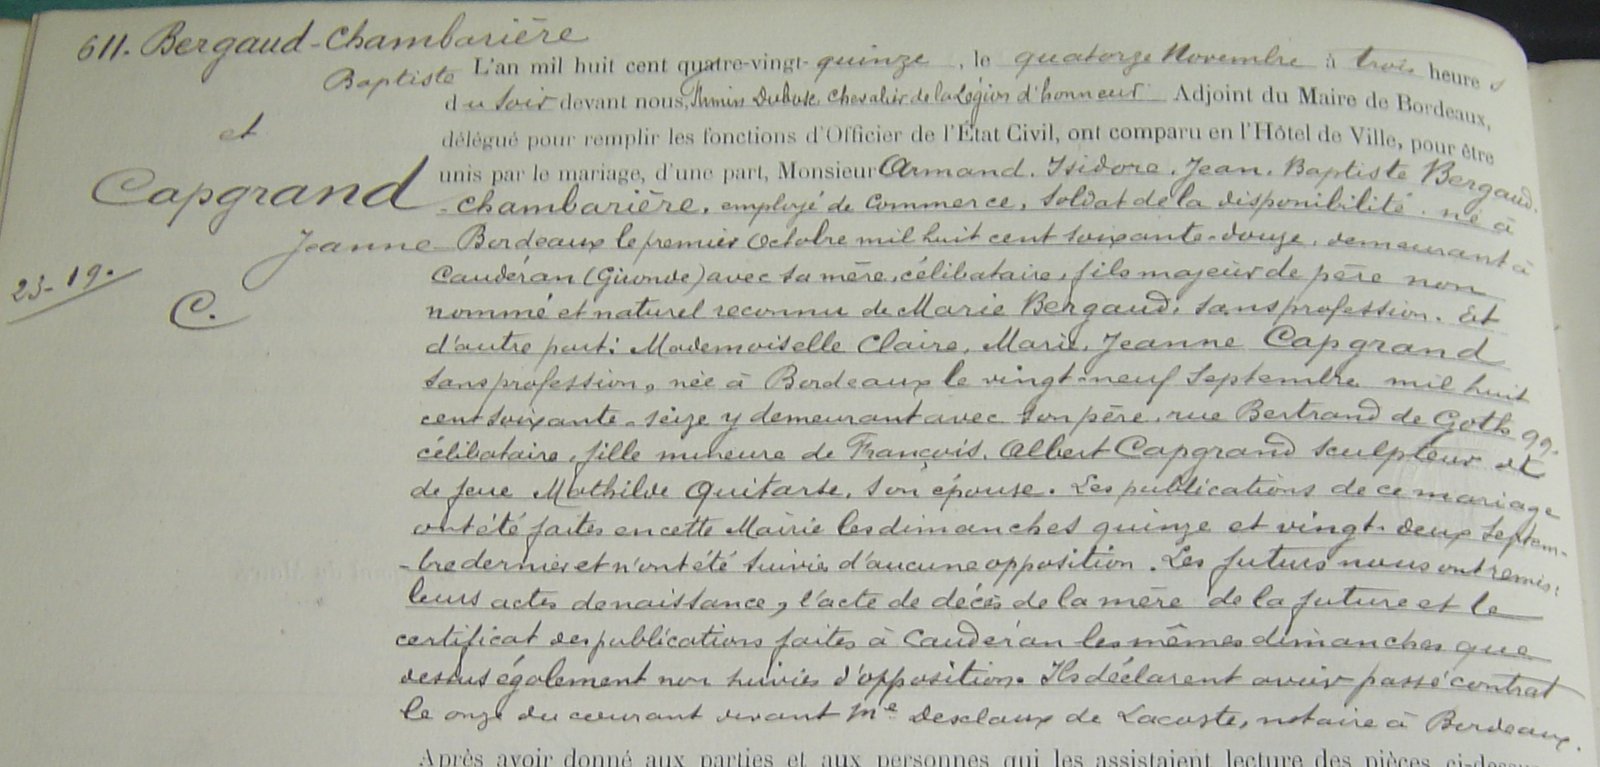 611. Bergaud-Chambarière
Baptiste
et
Capgrand
Jeanne
23-19.
C.
L'an mil huit cent quatre-vingt-quinze, le quatorze Novembre à trois heures
du soir devant nous, Dubuse Chevalier de la Légion d'honneur Adjoint du Maire de Bordeaux,
délégué pour remplir les fonctions d'Officier de l'État Civil, ont comparu en l'Hôtel de Ville, pour être
unis par le mariage, d'une part, Monsieur Armand, Isidore, Jean, Baptiste Bergaud-
-Chambarière, employé de Commerce, soldat de la disponibilité, né à
Bordeaux le premier Octobre mil huit cent soixante-douze, demeurant à
Caudéran (Gironde) avec sa mère, célibataire, fils majeur de père non
nommé et naturel reconnu de Marie Bergaud, sans profession. Et
d'autre part: Mademoiselle Claire, Marie, Jeanne Capgrand
sans profession, née à Bordeaux le vingt-neuf Septembre mil huit
cent soixante-seize y demeurant avec son père, rue Bertrand de Goth 99.
célibataire, fille mineure de François, Albert Capgrand sculpteur et
de feue Mathilde Quitarse, son épouse. Les publications de ce mariage
ont été faites en cette Mairie les dimanches quinze et vingt-deux Septem-
-bre dernier et n'ont été suivies d'aucune opposition. Les futurs nous ont remis:
leurs actes de naissance, l'acte de décès de la mère de la future et le
certificat des publications faites à Caudéran les mêmes dimanches que
dessus également non suivies d'opposition. Ils déclarent avoir passé contrat
le onze du courant devant Me Desclaux de Lacoste, notaire à Bordeaux.
Après avoir donné aux parties et aux personnes qui les assistaient lecture des pièces ci-dessus